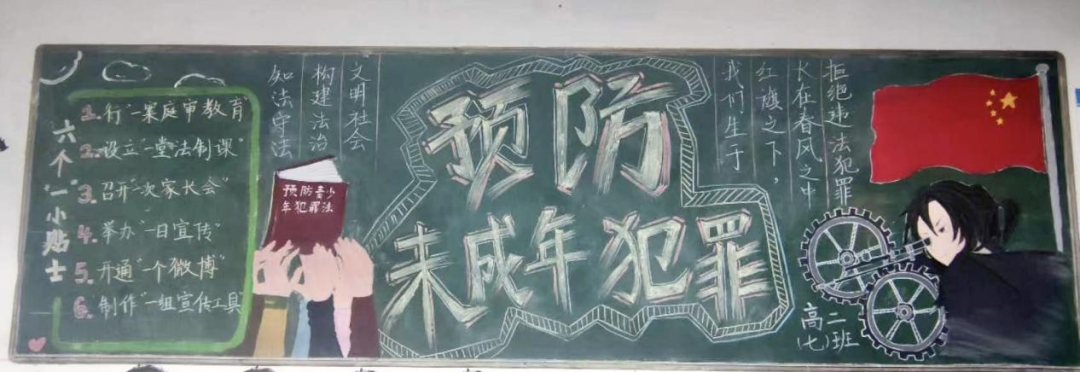 六个"一"小贴士
1.行"一案庭审教育"
2.设立"一堂法制课"
3.召开"一次家长会"
4.举办"一日宣传"
5.开通"一个微博"
6.制作"一组宣传工具"
知法守法
构建法治
文明社会
预防青少
年犯罪法
预防
未成年犯罪
我们生于
红旗之下，
长在春风之中
拒绝违法犯罪
高二
(七)班